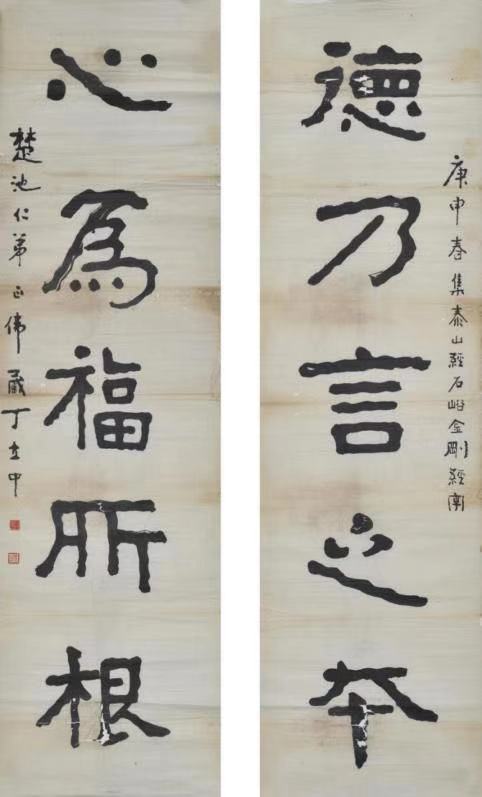 德乃言之夲
庚申春集泰山經石峪金剛經
心為福所根
楚池仁弟正丁立中